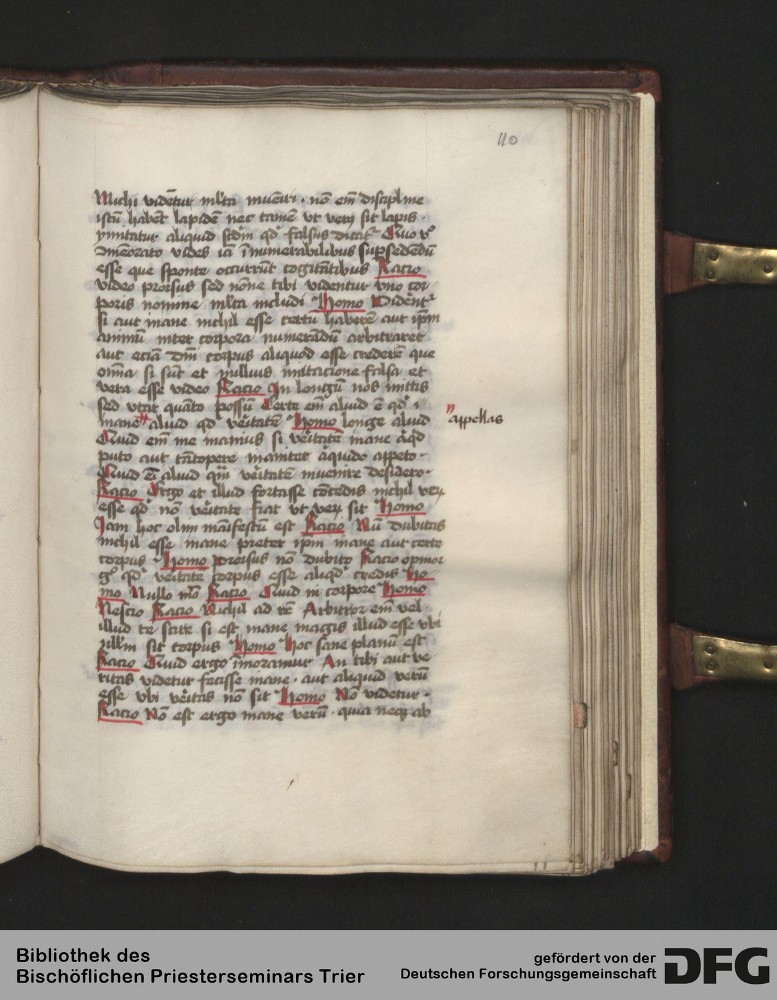 110
Michi vidēt᷑ mlta inueīri · nō em̄ discipline
istū haber̄t lapidē nec tamē vt verꝯ sit lapis ·
ymitatur aliquid scdm̄ qd̓ falsus dicat᷑ Quo vͦ
ōmeorato vides iā īnumerabilibus supsedendū
esse que sponte occurrūt cogitātibus Racio
video prorsus sed nōne tibi videntur vno cor
poris nomine mlta includi Homo Vident᷑
si aut inane nichil esse certū haberē aut ip̄m
animū inter corpora numerādū arbitrarer
aut eciā dm̄ corpus aliquod esse crederē que
om̄ia si sūt et nullius imitacione falsa et
vera esse video Racio In longū nos mittis
sed vtar quāto possū Certe em̄ aliud ē qd̓ i
inane aliud qd̓ v̓itatē Homo longe aliud
appellas
Quid em̄ me inanius si v̓itatē inane aliqd̓
puto aut tātopere inaniter aliquid appeto ·
Quid ē aliud qm̄ v̓itatē inuenire desidero ·
Racio Ergo et illud fortasse cōcedis nichil verꝯ
esse qd̓ nō v̓itate fiat vt verꝯ sit Homo
Iam hoc olim manifestū est Racio Nū dubitas
nichil esse inane preter ip̄m inane aut certe
corpus · Homo prorsus nō dubito Racio opinor
gͦ qd̓ veritate corpus esse aliqd̓ credis Ho
mo Nullo mō Racio Quid in corpore Homo
Nescio Racio Nichil ad rē Arbitror em̄ vel ·
illud te scire si est inane magis illud esse vbi
nllm̄ sit corpus Homo Hoc sane planū est
Racio Quid ergo īmoramur An tibi aut ve
ritas videtur fecisse inane · aut aliquid verū
esse vbi v̓itas nō sit Homo Nō videtur ·
Racio Nō est ergo inane verū · quia neqꝫ ab
Bibliothek des
Bischöflichen Priesterseminars Trier
gefördert von der
Deutschen Forschungsgemeinschaft
DFG